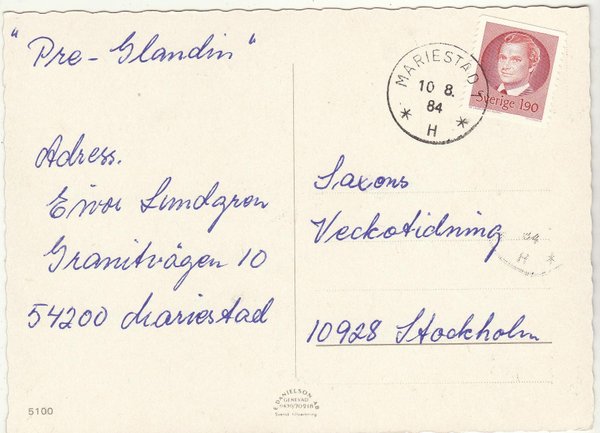 "Pre-Glandin"
Adress.
Eivor Lundgren
Granitvägen 10
54200 Mariestad
MARIESTAD
10 8.
84
* H *
Sverige 190
Saxons
Veckotidning
10928 Stockholm
84
H *
5100
E. DANIELSON AB
GENEVAD